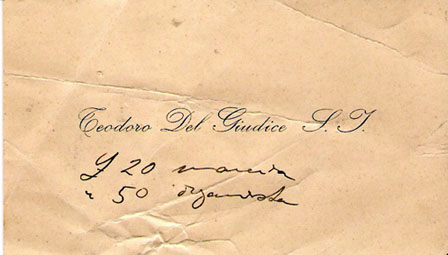 Teodoro Del Giudice S. J.
£ 20 marcia
" 50 organista